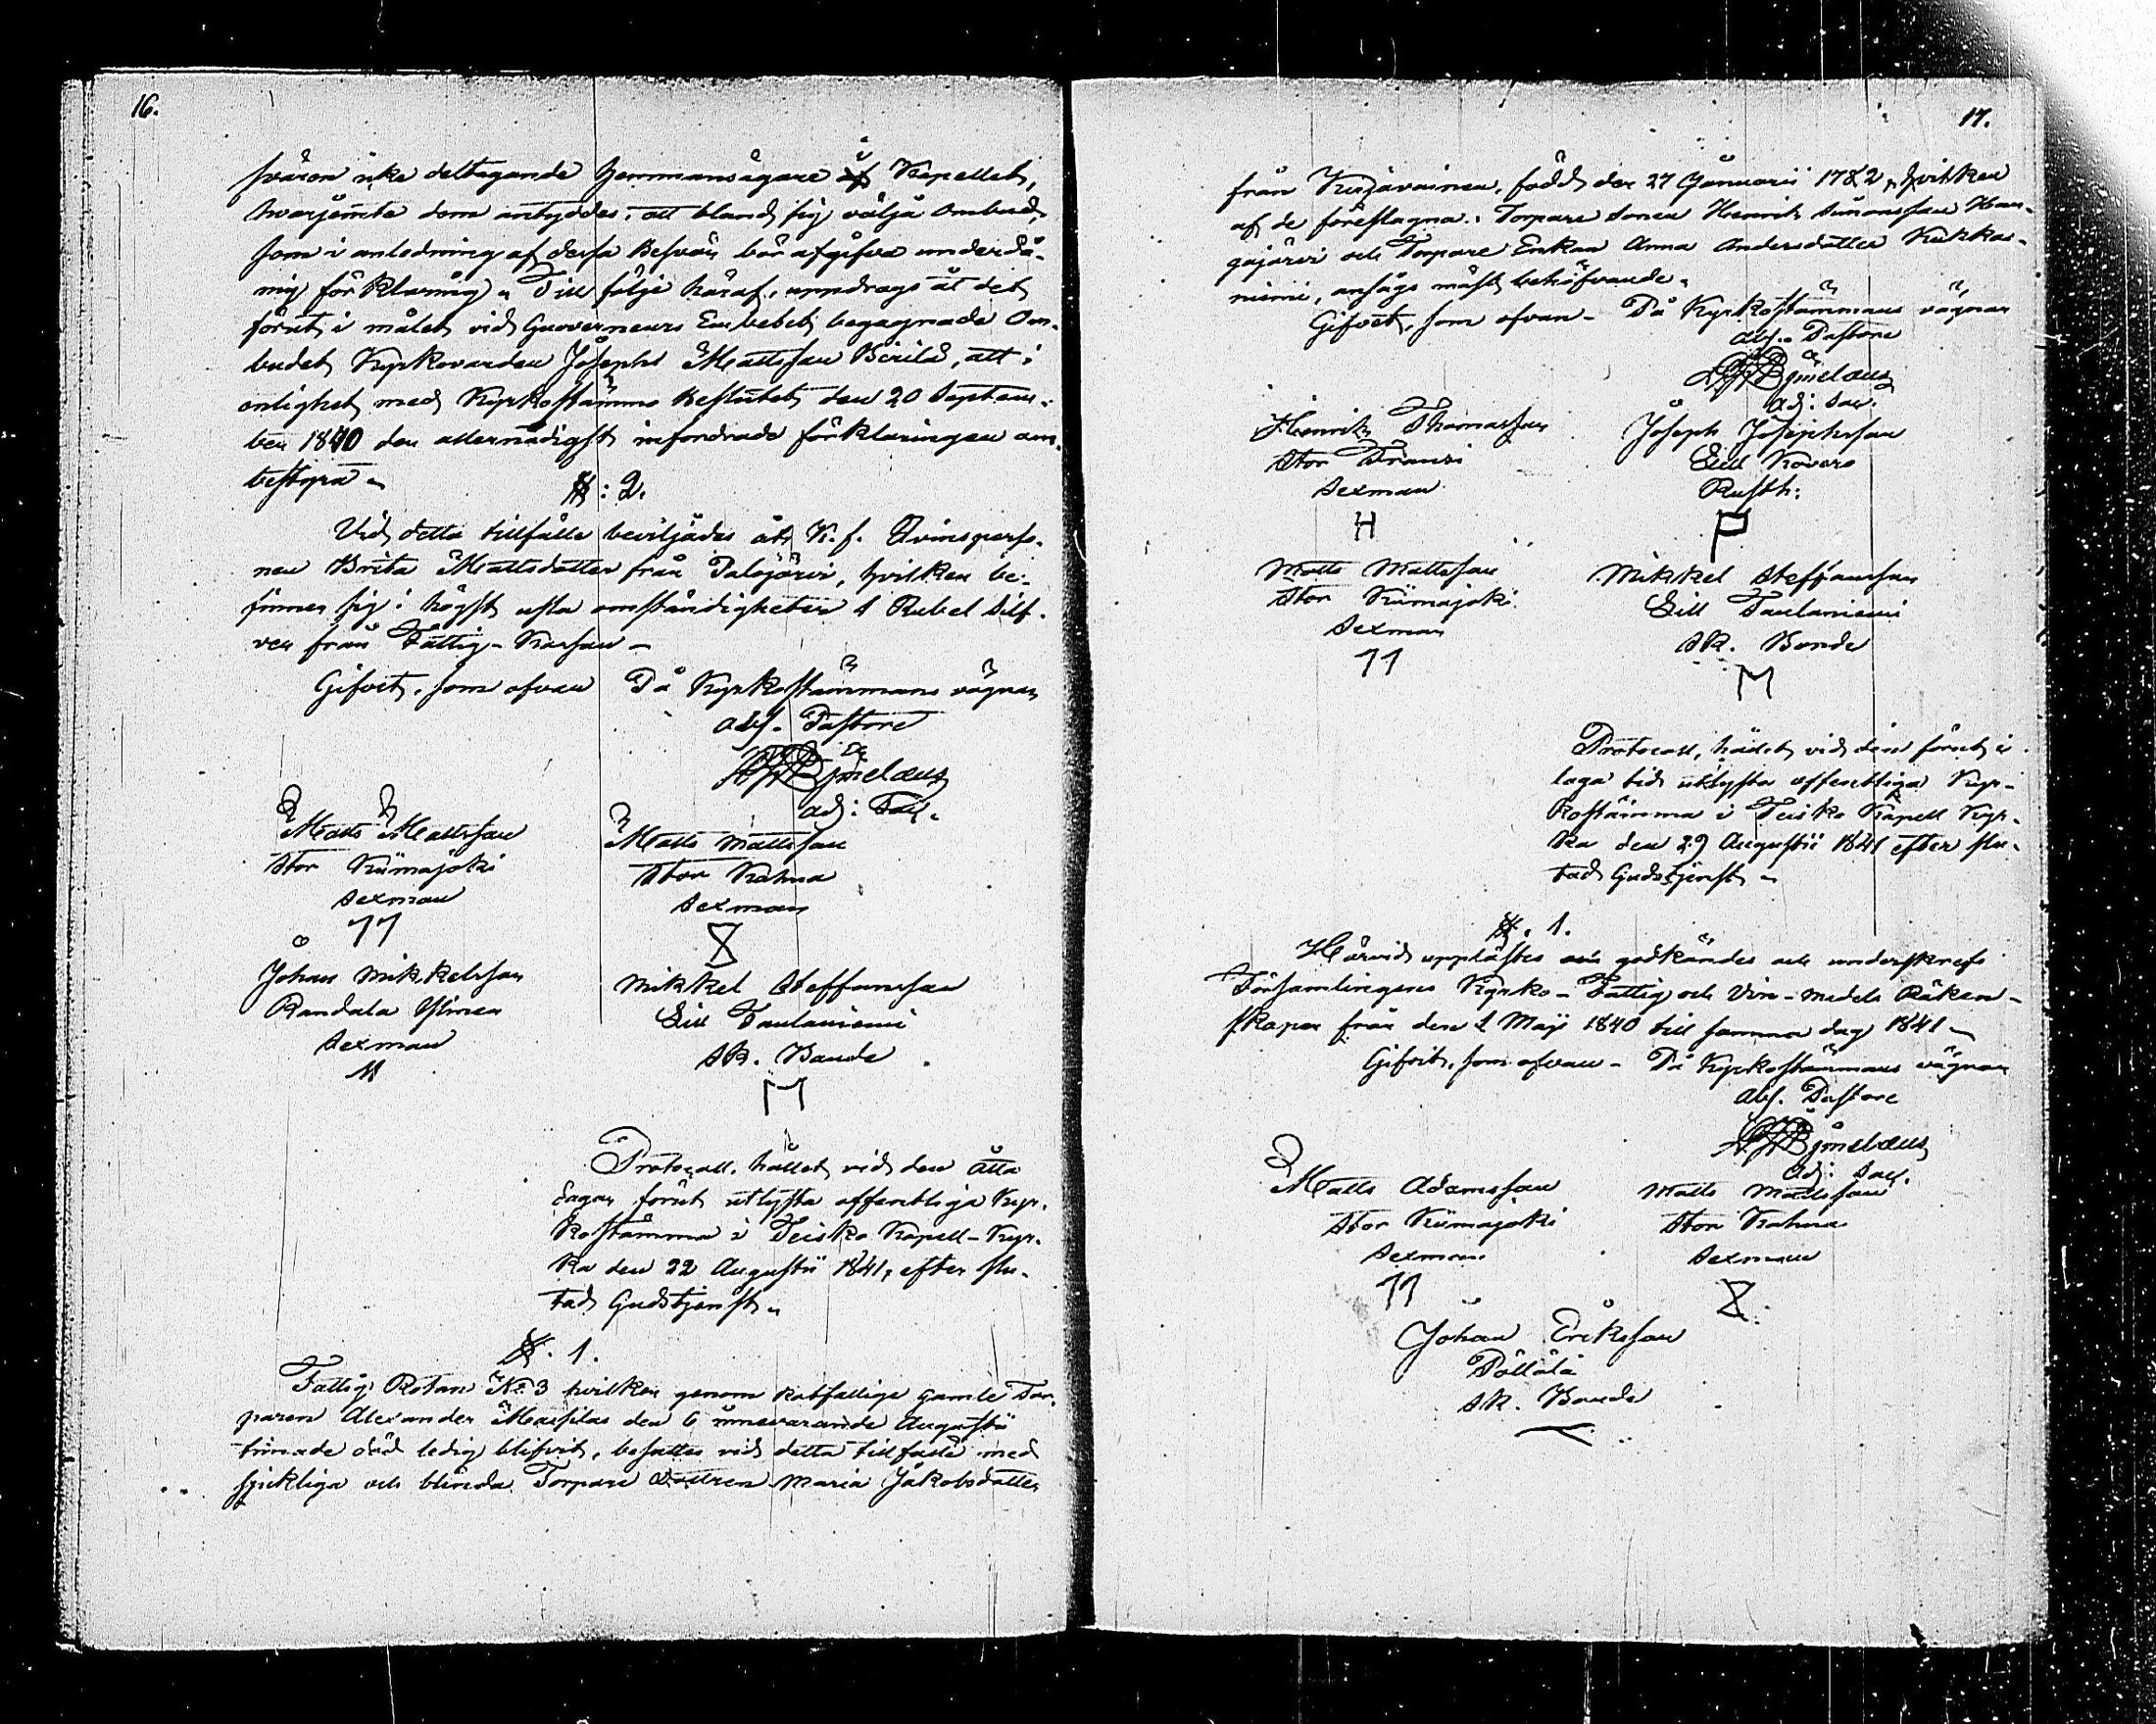 16.
svären icke deltagande Hemmansägare i Kapellet,
hvarjemte dom antyddes, att bland sig välja Ombud,
som i anledning af dessa Besvär bör afgifva underdå-
nig förklaring. Till följe häraf, uppdrogs åt det
förut i målet vid Guverneurs Embetet begagnade Om-
budet Kyrkovärden Joseph Mattsson Birilä, att i
enlighet med Kyrkostämmo Beslutet den 20 Septem-
ber 1840 den allernådigst infordrade förklaringen om-
bestyra.
§: 2.
Vid detta tillfälle beviljades åt K. f. Qvinsperso-
nen Brita Mattsdotter från Palojärvi, hvilken be-
finner sig i högst usla omständigheter 1 Rubel Silf-
ver från Fattig-Kassan
Gifvet, som ofvan På Kyrkostämmans vägnar
abs. Pastore
adj: Sac.
Matts Mattsson
Stor Kiimajoki
Sexman
Matts Mattsson
Stor Kahna
Sexman
Johan Mikkelsson
Randala Ylinen
Sexman
Mikkel Steffansson
Lill Taulaniemi
Sk. Bonde
M
Protocoll, hållet vid den åtta
dagar förut utlysta offentliga Kyr-
kostämma i Teisko Kapell-Kyr-
ka den 22 Augustii 1841, efter slu-
tad Gudstjenst.
§. 1.
Fattig Rotan No 3 hvilken genom rotfattige gamle Tor-
paren Alexander Marsilas den 6 innevarande Augustii
timade död ledig blifvit, besattes vid detta tillfälle med
sjukliga och blinda Torpare dottren Maria Jakobsdotter
17.
från Kurjavainen, född den 27 Januarii 1782, hvilken
af de föreslagna: Torpare Sonen Henrik Simonsson Kan-
gajärvi och Torpare Enkan Anna Andersdotter Kukkas-
niemi, ansågs mäst behöfvande.
Gifvet, som ofvan - På Kyrkostämmans vägnar
abs. Pastore
adj: Sac.
Henrik Thomasson
Stor Fransi
Sexman
H
Joseph Josephsson
Lill Kovero
Rusth:
P
Matts Mattsson
Stor Kiimajoki
Sexman
Mikkel Steffansson
Lill Taulaniemi
Sk. Bonde
M
Protocoll, hållet vid den förut i
laga tid utlysta offentliga Kyr-
kostämma i Teisko Kapell Kyr-
ka den 29 Augustii 1841 efter slu-
tad Gudstjenst.
§. 1.
Härvid upplästes och godkändes och underskrefs
Församlingens Kyrko- Fattig och Vin-medels Räken-
skaper från den 1 Maji 1840 till samma dag 1841
Gifvit, som ofvan - På Kyrkostämmans vägnar
abs. Pastore
adj: Sac.
Matts Adamsson
Stor Kiimajoki
Sexman
Matts Mattsson
Stor Kahna
Sexman
Johan Eriksson
Pöllölä
Sk. Bonde